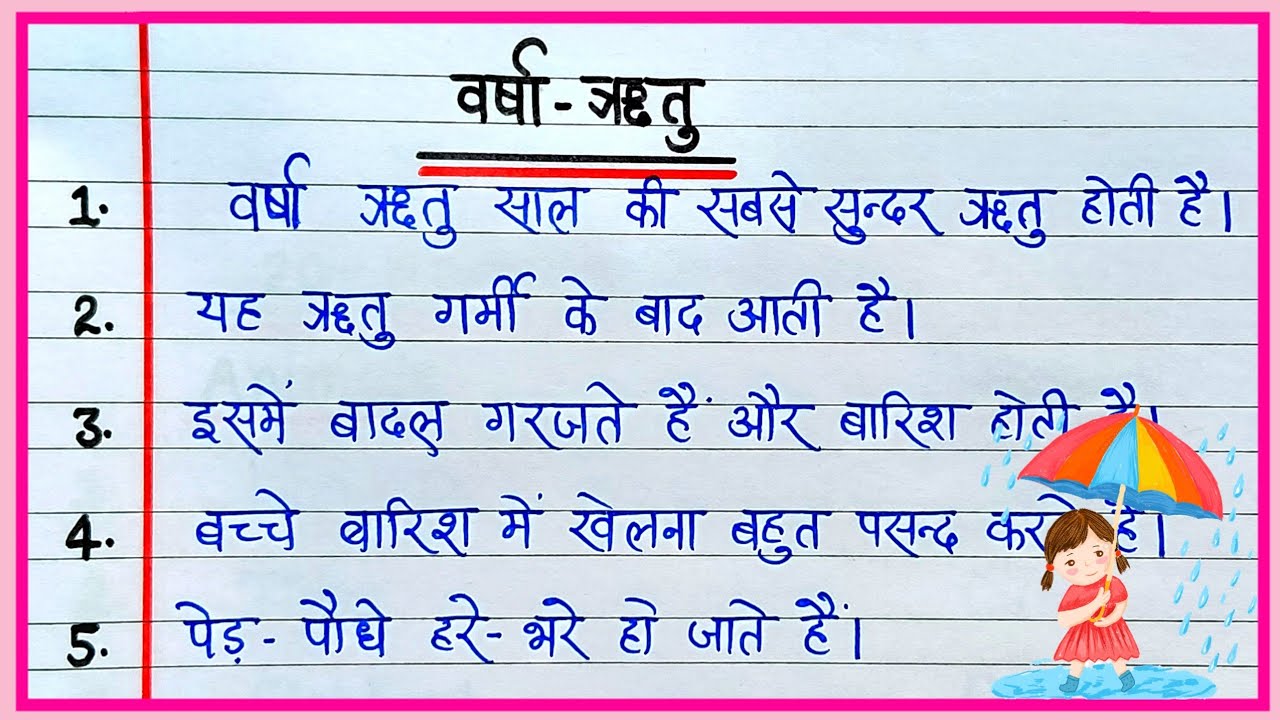 वर्षा - ऋतु
1. वर्षा ऋतु साल की सबसे सुन्दर ऋतु होती है।
2. यह ऋतु गर्मी के बाद आती है।
3. इसमें बादल गरजते हैं और बारिश होती है।
4. बच्चे बारिश में खेलना बहुत पसन्द करते हैं।
5. पेड़ - पौधे हरे - भरे हो जाते हैं।